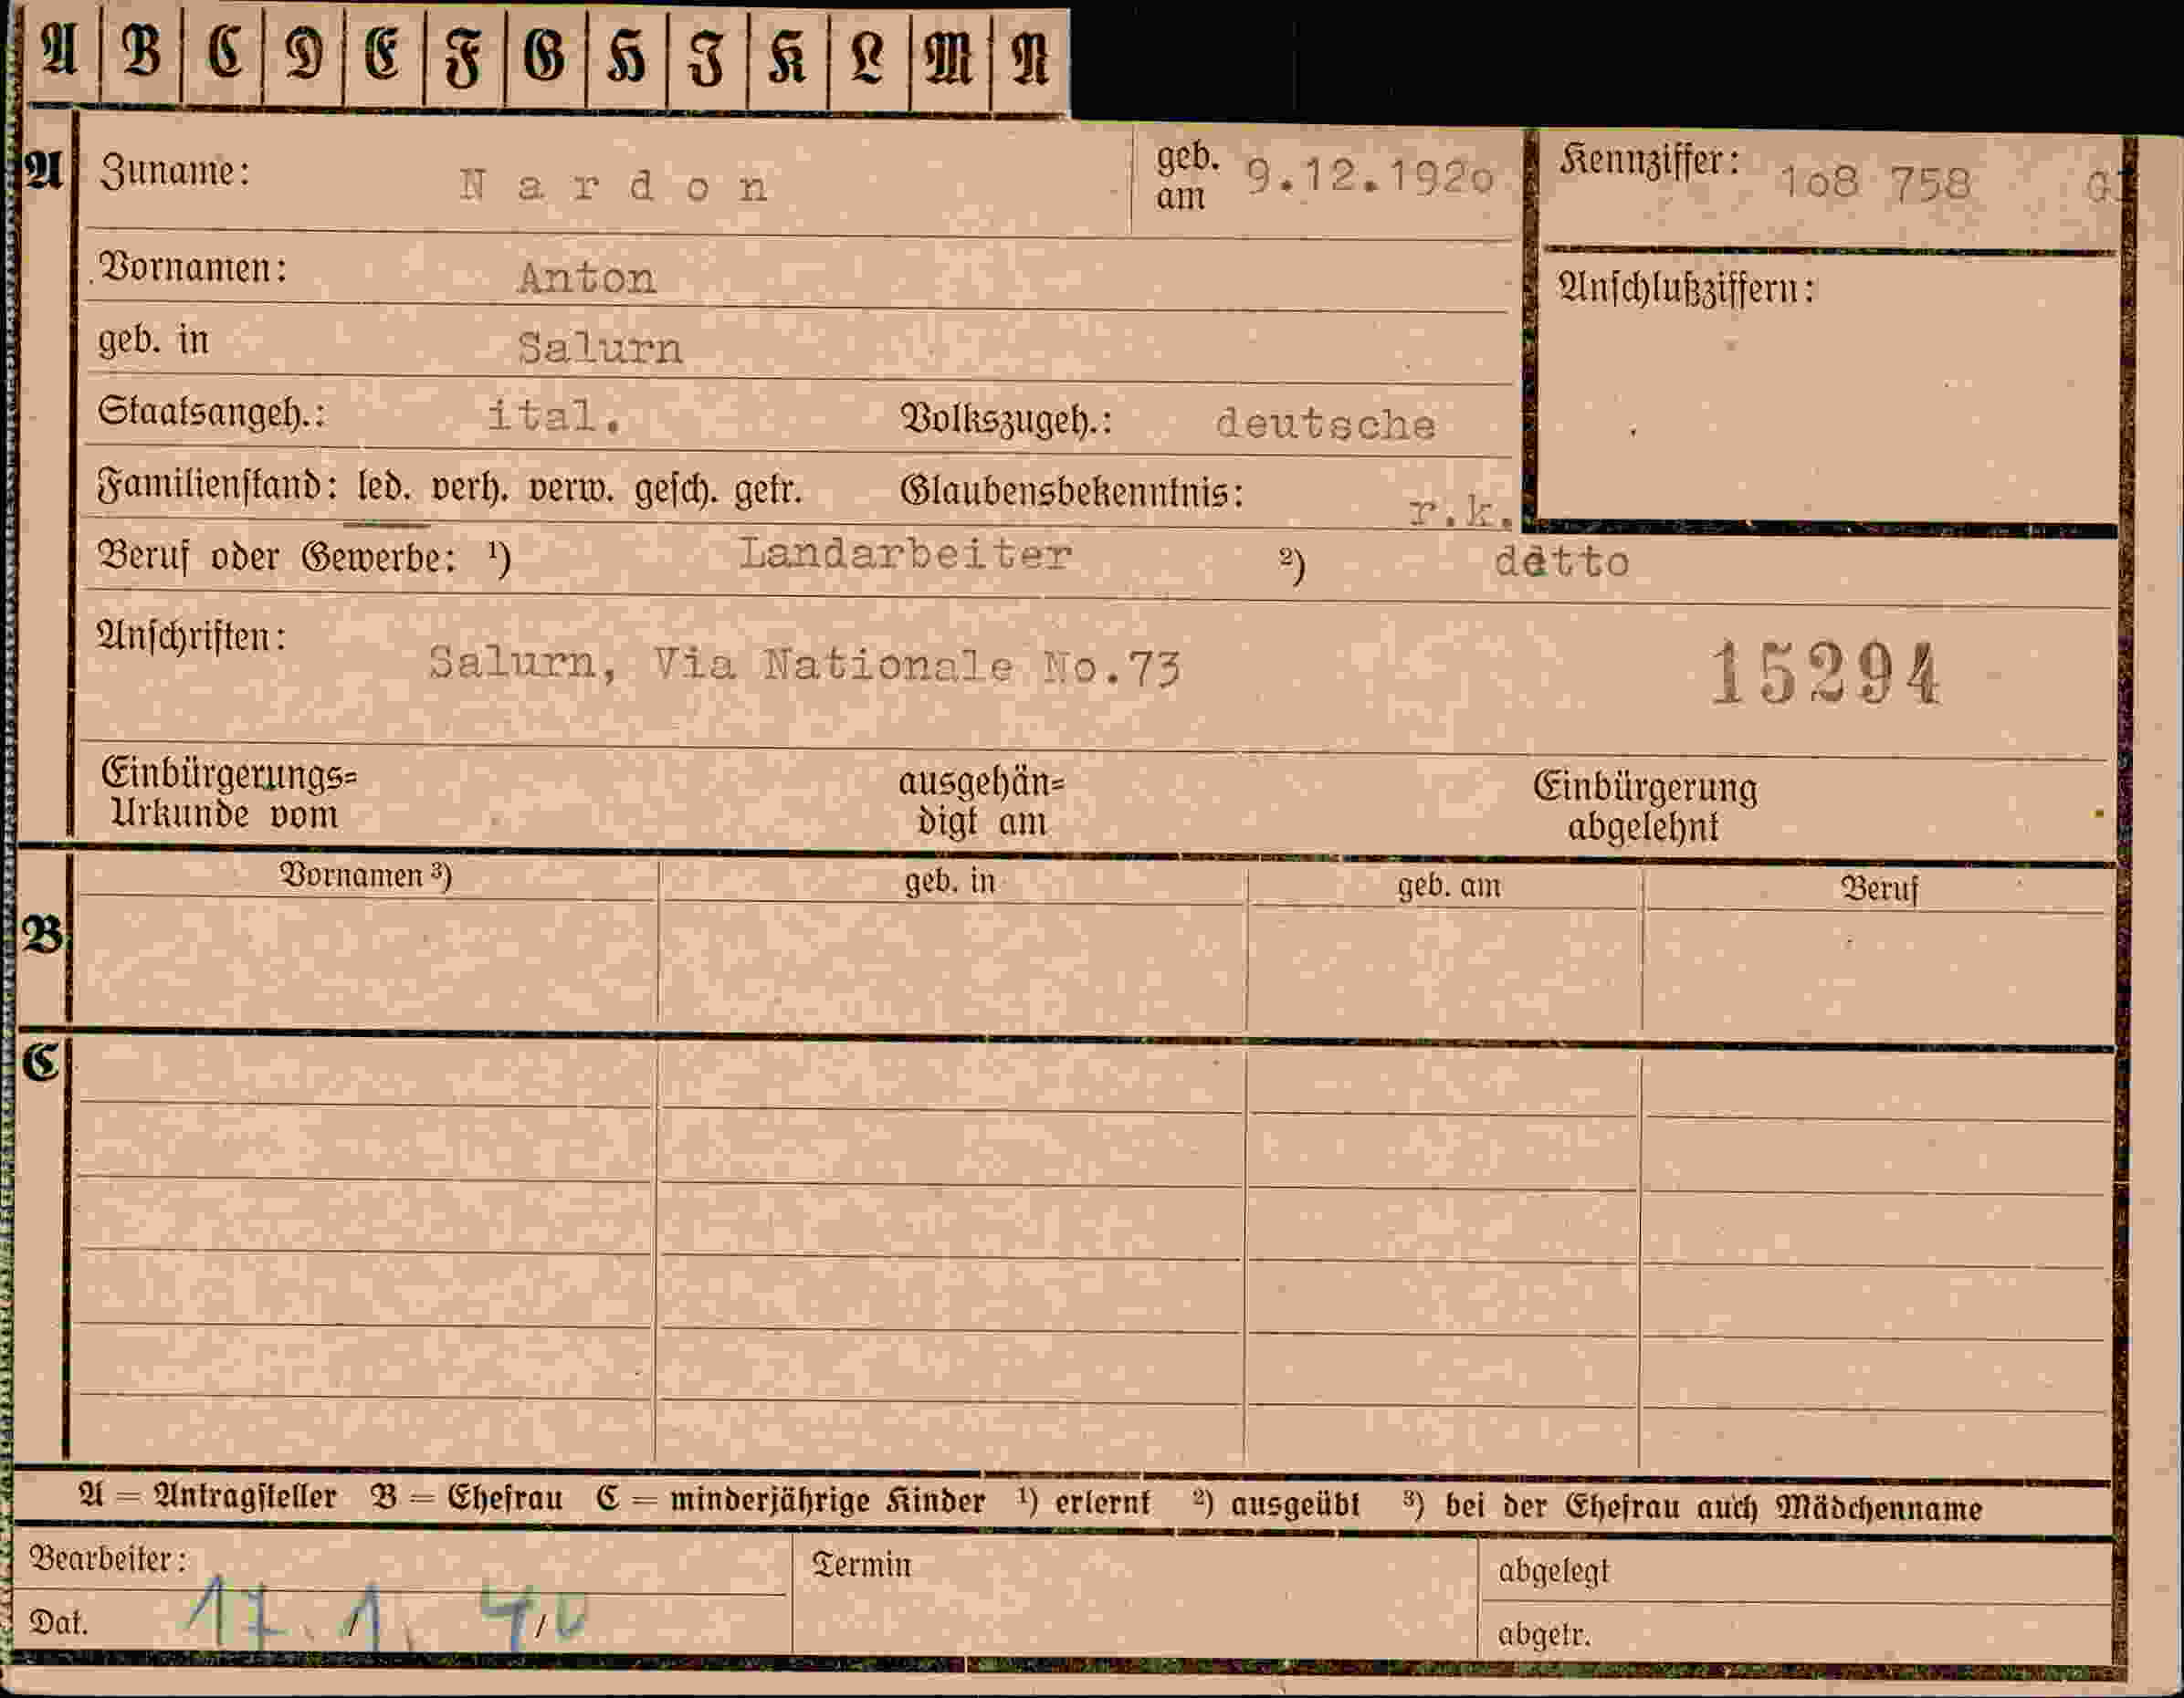 A B C D E F G H I K L M N
A Zuname: Nardon geb. am 9.12.1920 Kennziffer: 108 758
Vornamen: Anton Anschlußziffern:
geb. in Salurn
Staatsangeh.: ital. Volkszugeh.: deutsche
Familienstand: led. verh. verw. gesch. getr. Glaubensbekenntnis: r.k.
Beruf oder Gewerbe: ¹) Landarbeiter ²) detto
Anschriften: Salurn, Via Nationale No.73 15294
Einbürgerungs= ausgehän= Einbürgerung
Urkunde vom digt am abgelehnt
Vornamen ³) geb. in geb. am Beruf
B
C
A = Antragsteller B = Ehefrau C = minderjährige Kinder ¹) erlernt ²) ausgeübt ³) bei der Ehefrau auch Mädchenname
Bearbeiter: Termin abgelegt
Dat. 17. 1. 40 abgetr.